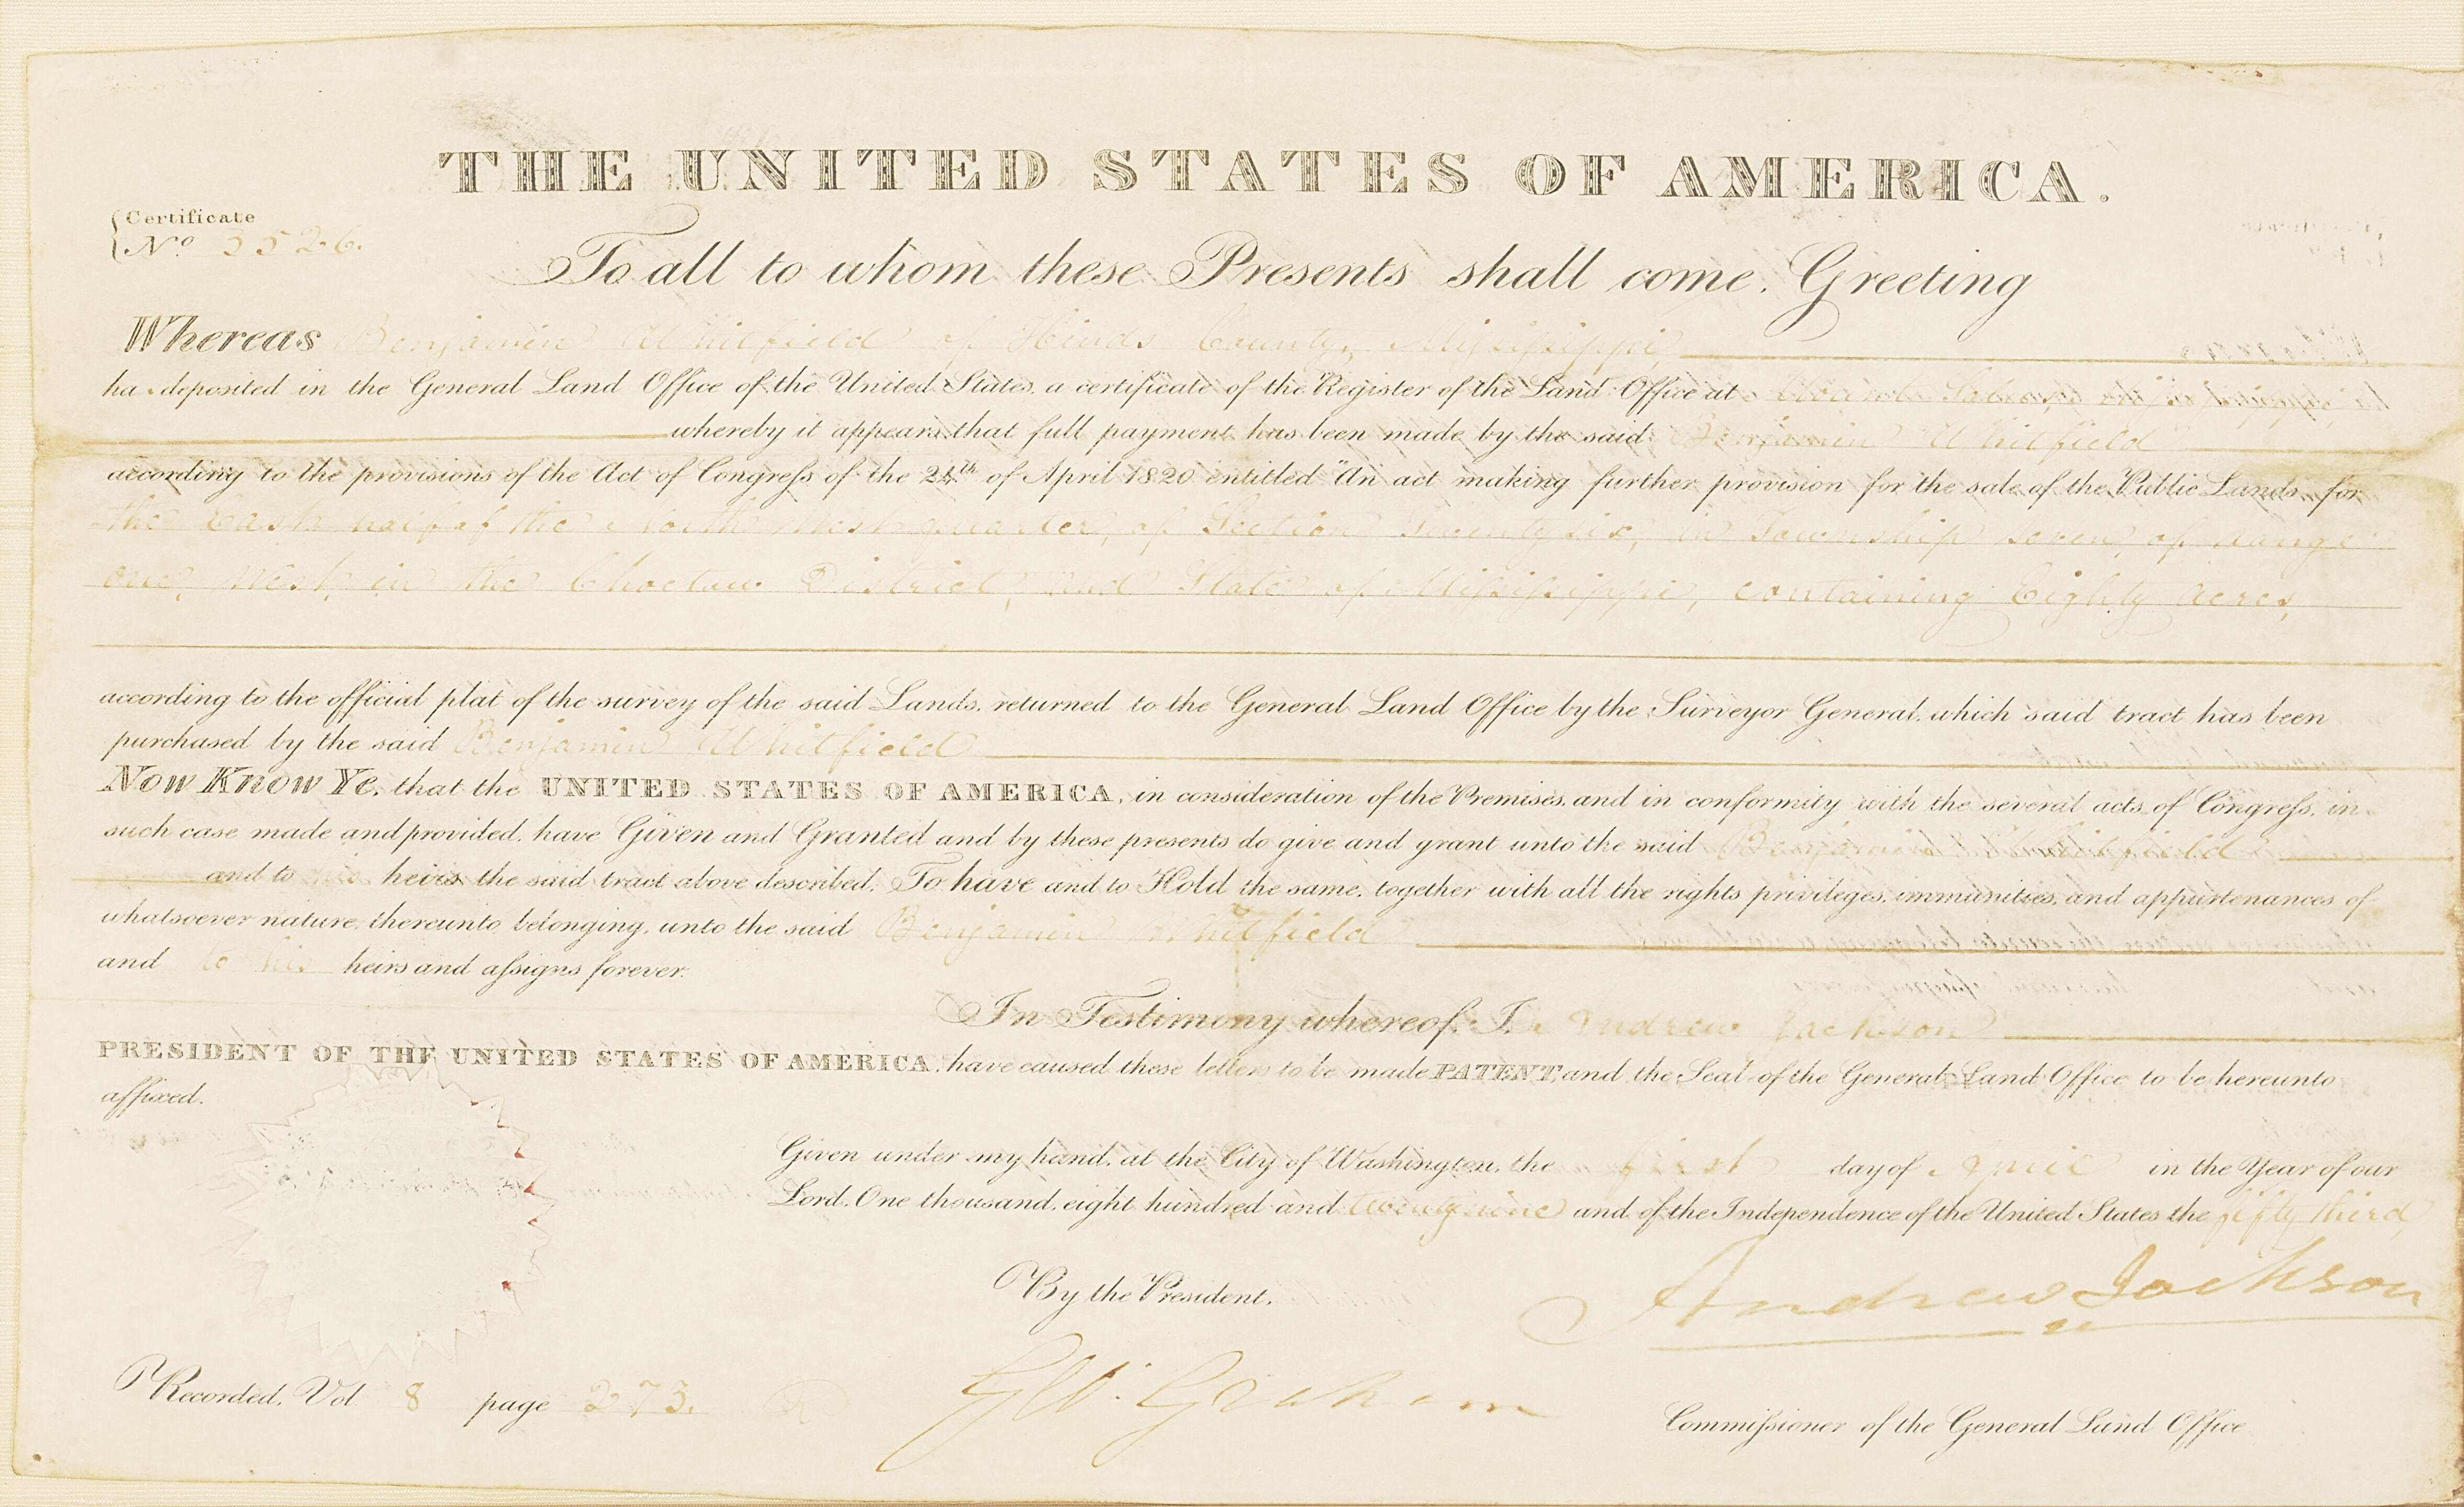 THE UNITED STATES OF AMERICA.
Certificate
No. 2526.
To all to whom these Presents shall come, Greeting
Whereas Benjamin Whitfield of Hinds County, Mississippi
ha deposited in the General Land Office of the United States, a certificate of the Register of the Land Office at Mount Salus,
whereby it appears that full payment has been made by the said Benjamin Whitfield
according to the provisions of the Act of Congress of the 24th of April 1820 entitled "An act making further provision for the sale of the Public Lands" for
the East half of the North West quarter, of Section Twenty six, in Township seven, of Range
one, West, in the Choctaw District, and State of Mississippi, containing Eighty acres,
according to the official plat of the survey of the said Lands, returned to the General Land Office by the Surveyor General, which said tract has been
purchased by the said Benjamin Whitfield
Now Know Ye, that the UNITED STATES OF AMERICA, in consideration of the Premises, and in conformity with the several acts of Congress, in
such case made and provided, have Given and Granted and by these presents do give and grant unto the said Benjamin Whitfield
and to his heirs the said tract above described. To have and to Hold the same, together with all the rights privileges, immunities, and appurtenances of
whatsoever nature, thereunto belonging, unto the said Benjamin Whitfield
and to his heirs and assigns forever.
In Testimony whereof, I, Andrew Jackson
PRESIDENT OF THE UNITED STATES OF AMERICA, have caused these letters to be made PATENT and the Seal of the General Land Office to be hereunto
affixed.
Given under my hand, at the City of Washington, the first day of April in the Year of our
Lord, One thousand, eight hundred and twenty nine and of the Independence of the United States the fifty third,
By the President.
Andrew Jackson
Recorded, Vol 8 page 273.
Geo: Graham
Commissioner of the General Land Office